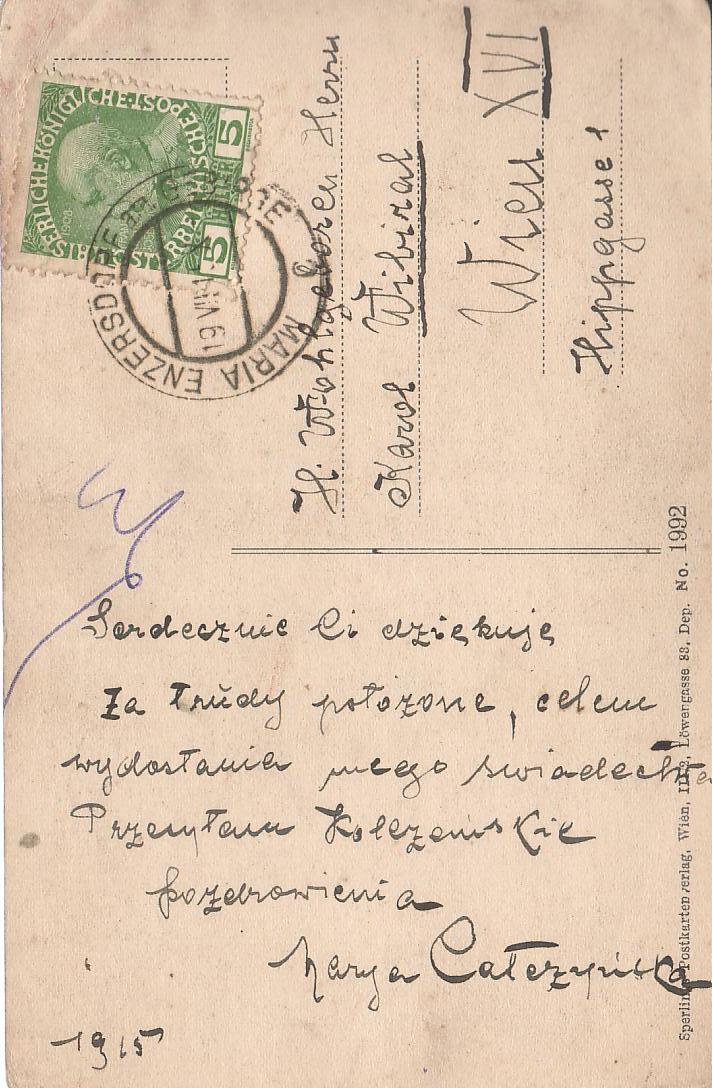 KAISERLICHE KÖNIGLICHE ÖSTERREICHISCHE POST
5 5
1908
MARIA ENZERSDORF
H. Wohlgeboren Herrn
Karol Wibiral
Wien XVI
Hippgasse 1
Serdecznie Ci dziękuję
za trudy położone, celem
wydostania mego świadectwa
Przesyłam Koleżeńskie
pozdrowienia
Marya Całczyńska
1915
Sperlings Postkartenverlag, Wien, III/2, Löwengasse 33, Dep. No. 1992